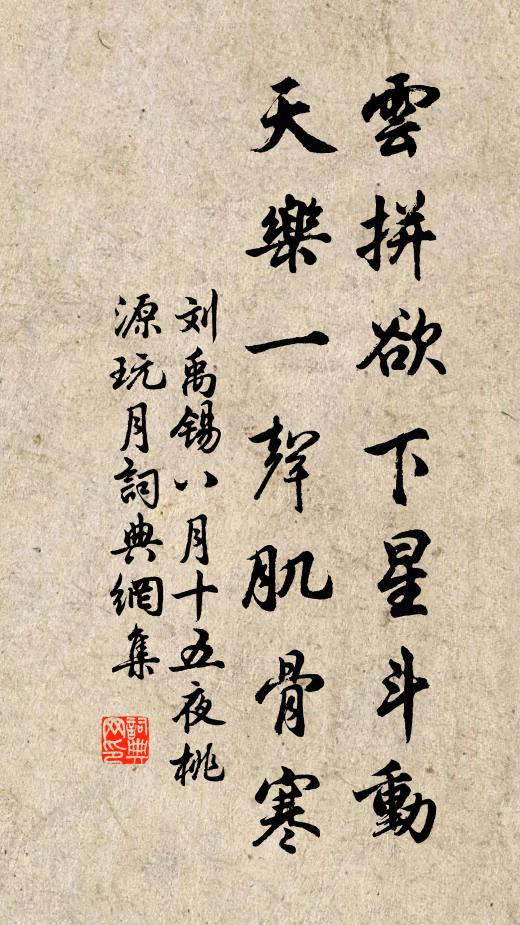 雲拼欲下星斗動
天樂一聲肌骨寒
刘禹锡八月十五夜桃
源玩月詞典網集
詞典
网印